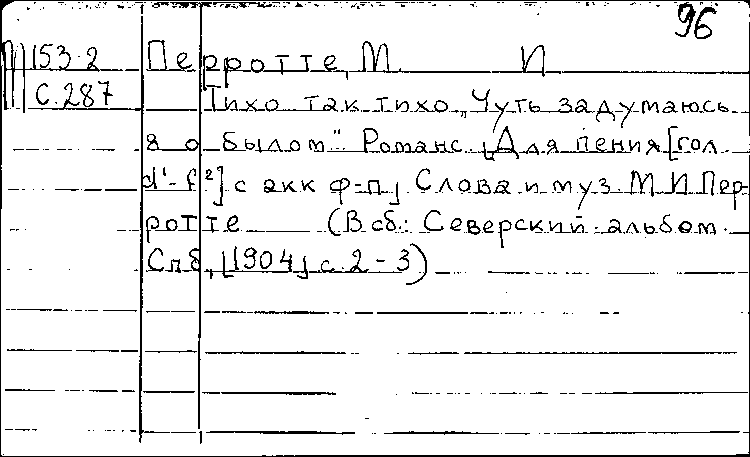 96
М 153-2 Перротте, М. И
С.287 Тихо так тихо „Чуть задумаюсь
я о былом" Романс. [Для пения [гол.
d¹-f²] с акк ф-п] Слова и муз М И Пер-
ротте (В сб: Северский альбом.
Спб, [1904] с. 2-3)